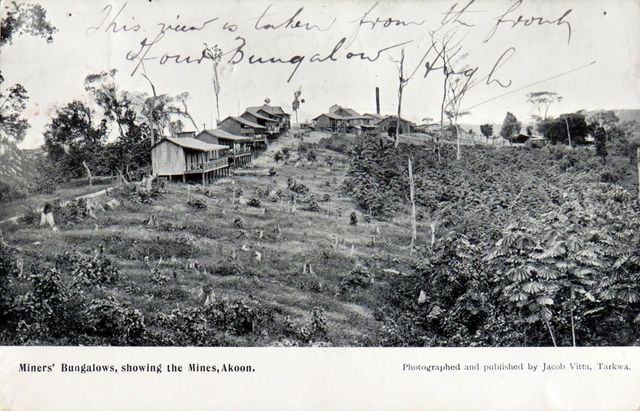 This view is taken from the front
of our Bungalow, Hugh
Miners' Bungalows, showing the Mines, Akoon.
Photographed and published by Jacob Vitta, Tarkwa.